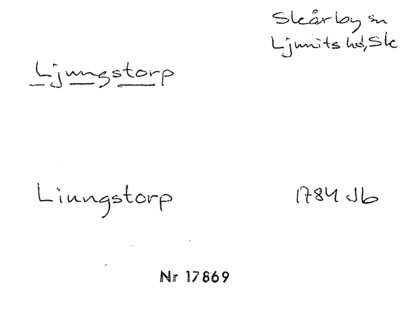 Skårby sn
Ljunits hd, Sk
Ljungstorp
Liungstorp 1784 Jb
Nr 17869